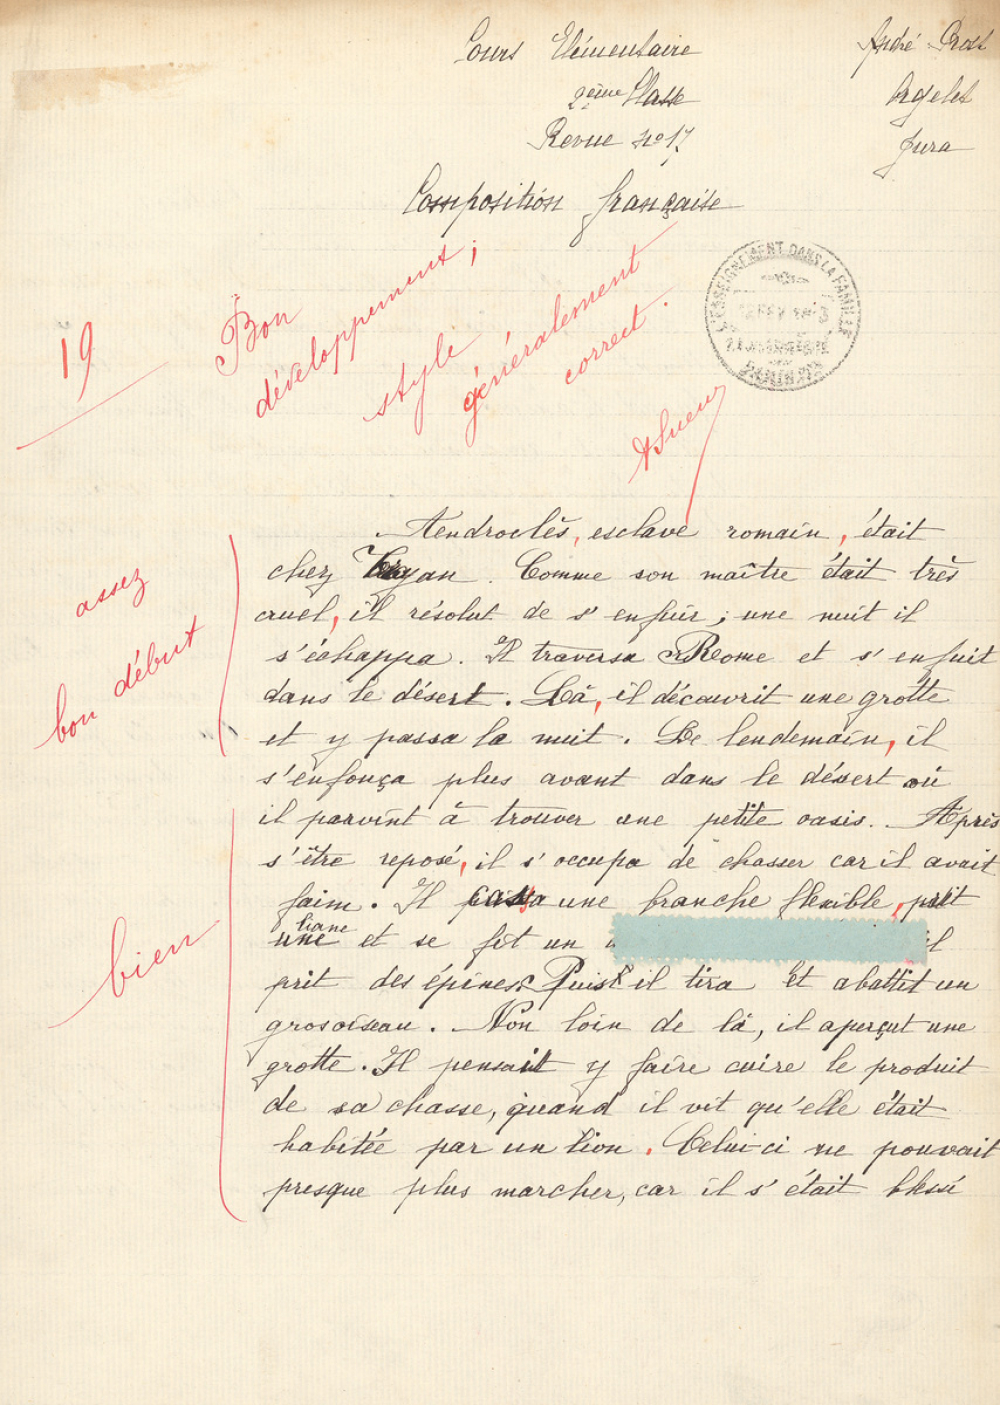 Cours Elémentaire
2ème Classe
Revue no 17
André
Orgelet
Jura
Composition française
19
Bon
développement ;
style
généralement
correct.
L'ENSEIGNEMENT DANS LA FAMILLE
assez
bon début
Aendroclès, esclave romain, était
chez Trajan. Comme son maître était très
cruel, il résolut de s'enfuir ; une nuit il
s'échappa. Il traversa Rome et s'enfuit
dans le désert. Là, il découvrit une grotte
et y passa la nuit. Le lendemain, il
s'enfonça plus avant dans le désert où
il parvint à trouver une petite oasis. Après
s'être reposé, il s'occupa de chasser car il avait
faim. Il cassa une branche flexible, prit
une liane et se fit un il
prit des épines. Puis il tira et abattit un
gros oiseau. Non loin de là, il aperçut une
grotte. Il pensait y faire cuire le produit
de sa chasse, quand il vit qu'elle était
habitée par un lion. Celui-ci ne pouvait
presque plus marcher, car il s'était blessé
bien